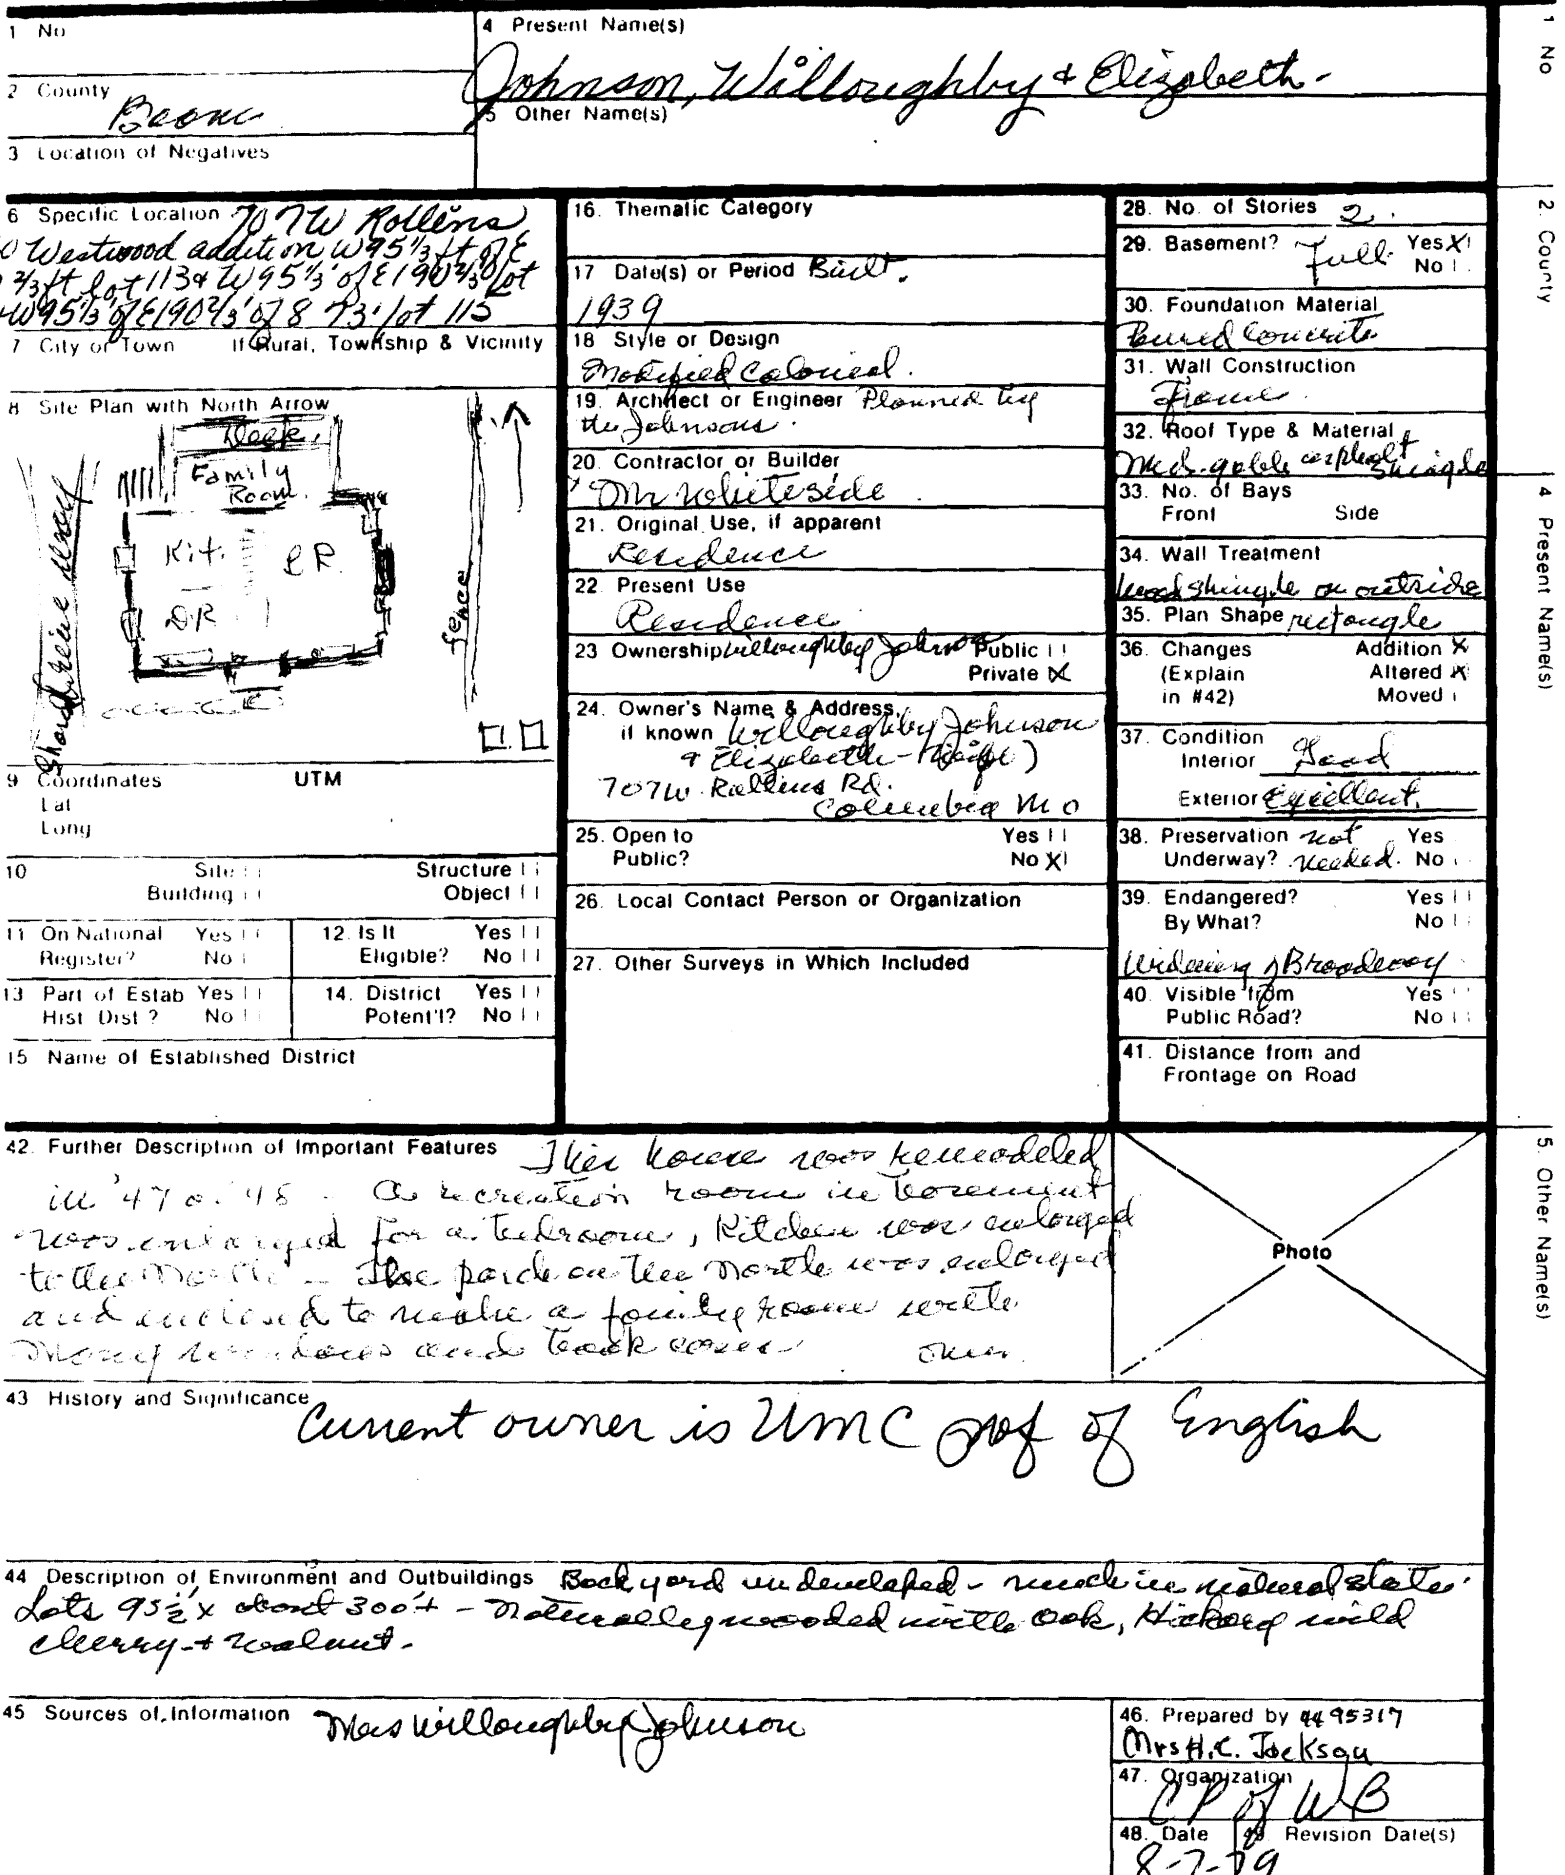 1 No
4 Present Name(s)
Johnson, Willoughby & Elizabeth -
2 County
Boone
5 Other Name(s)
3 Location of Negatives
6 Specific Location 707 W Rollins
Westwood addition W 95 1/3 ft of E
2/3 ft lot 113 & W 95 1/3' of E 190 2/3' of lot
W 95 1/3' of E 190 2/3' of 8 73' lot 115
7 City or Town If Rural, Township & Vicinity
8 Site Plan with North Arrow
Deck
Family
Room
Kit.
LR.
DR
fence
Shared drive
9 Coordinates UTM
Lat
Long
10 Site Structure
Building Object
11 On National Yes
Register? No
12. Is It Yes
Eligible? No
13 Part of Estab Yes
Hist Dist? No
14. District Yes
Potent'l? No
15 Name of Established District
16. Thematic Category
17 Date(s) or Period Built.
1939
18 Style or Design
Modified Colonial.
19. Architect or Engineer Planned by
the Johnsons.
20. Contractor or Builder
Mr Whiteside
21. Original Use, if apparent
Residence
22. Present Use
Residence
23 Ownership Willoughby Johnson Public
Private X
24. Owner's Name & Address,
if known Willoughby Johnson
& Elizabeth - (wife)
707 W. Rollins Rd.
Columbia Mo
25. Open to Yes
Public? No X
26. Local Contact Person or Organization
27. Other Surveys in Which Included
28. No. of Stories 2.
29. Basement? Full Yes X
No
30. Foundation Material
Poured Concrete
31. Wall Construction
Frame
32. Roof Type & Material
Med. gable asphalt shingle
33. No. of Bays
Front Side
34. Wall Treatment
Wood shingle on outside
35. Plan Shape rectangle
36. Changes Addition X
(Explain Altered X
in #42) Moved
37. Condition
Interior Good
Exterior Excellent.
38. Preservation not Yes
Underway? needed. No
39. Endangered? Yes
By What? No
Widening of Broadway
40. Visible from Yes
Public Road? No
41. Distance from and
Frontage on Road
42. Further Description of Important Features This house was remodeled
in '47 or '48. A recreation room in basement
was enlarged for a bedroom, Kitchen was enlarged
to the North - The porch on the North was enlarged
and enclosed to make a family room with
Many windows and book cases over
Photo
43 History and Significance
Current owner is UMC prof of English
44 Description of Environment and Outbuildings Back yard undeveloped - much in natural state.
Lots 95 1/2' x about 300'+ - Naturally wooded with Oak, Hickory wild
cherry + walnut.
45 Sources of Information Mrs Willoughby Johnson
46. Prepared by 4495317
Mrs H.C. Jackson
47. Organization
CP of WB
48. Date 49. Revision Date(s)
8-7-79
1 No
2. County
4 Present Name(s)
5. Other Name(s)